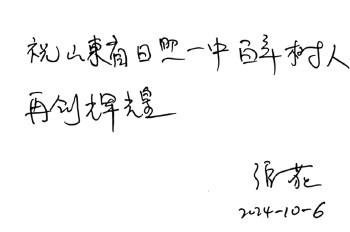 祝山東省日照一中百年树人
再创辉煌
張
2024-10-6